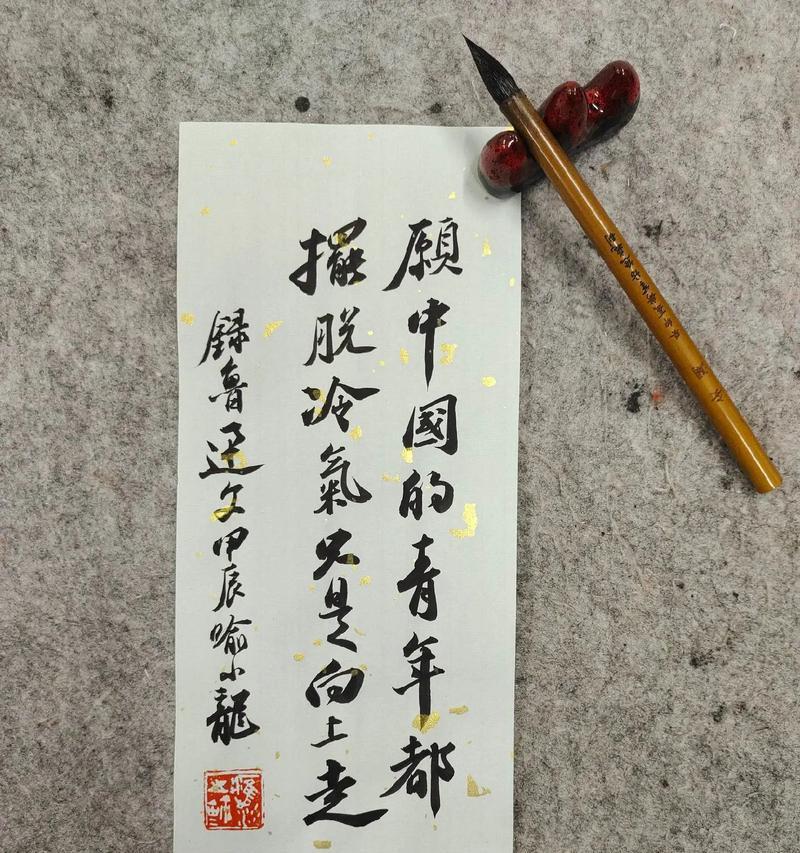 願中國的青年都
擺脫冷氣只是向上走
錄魯迅文甲辰喻小龍